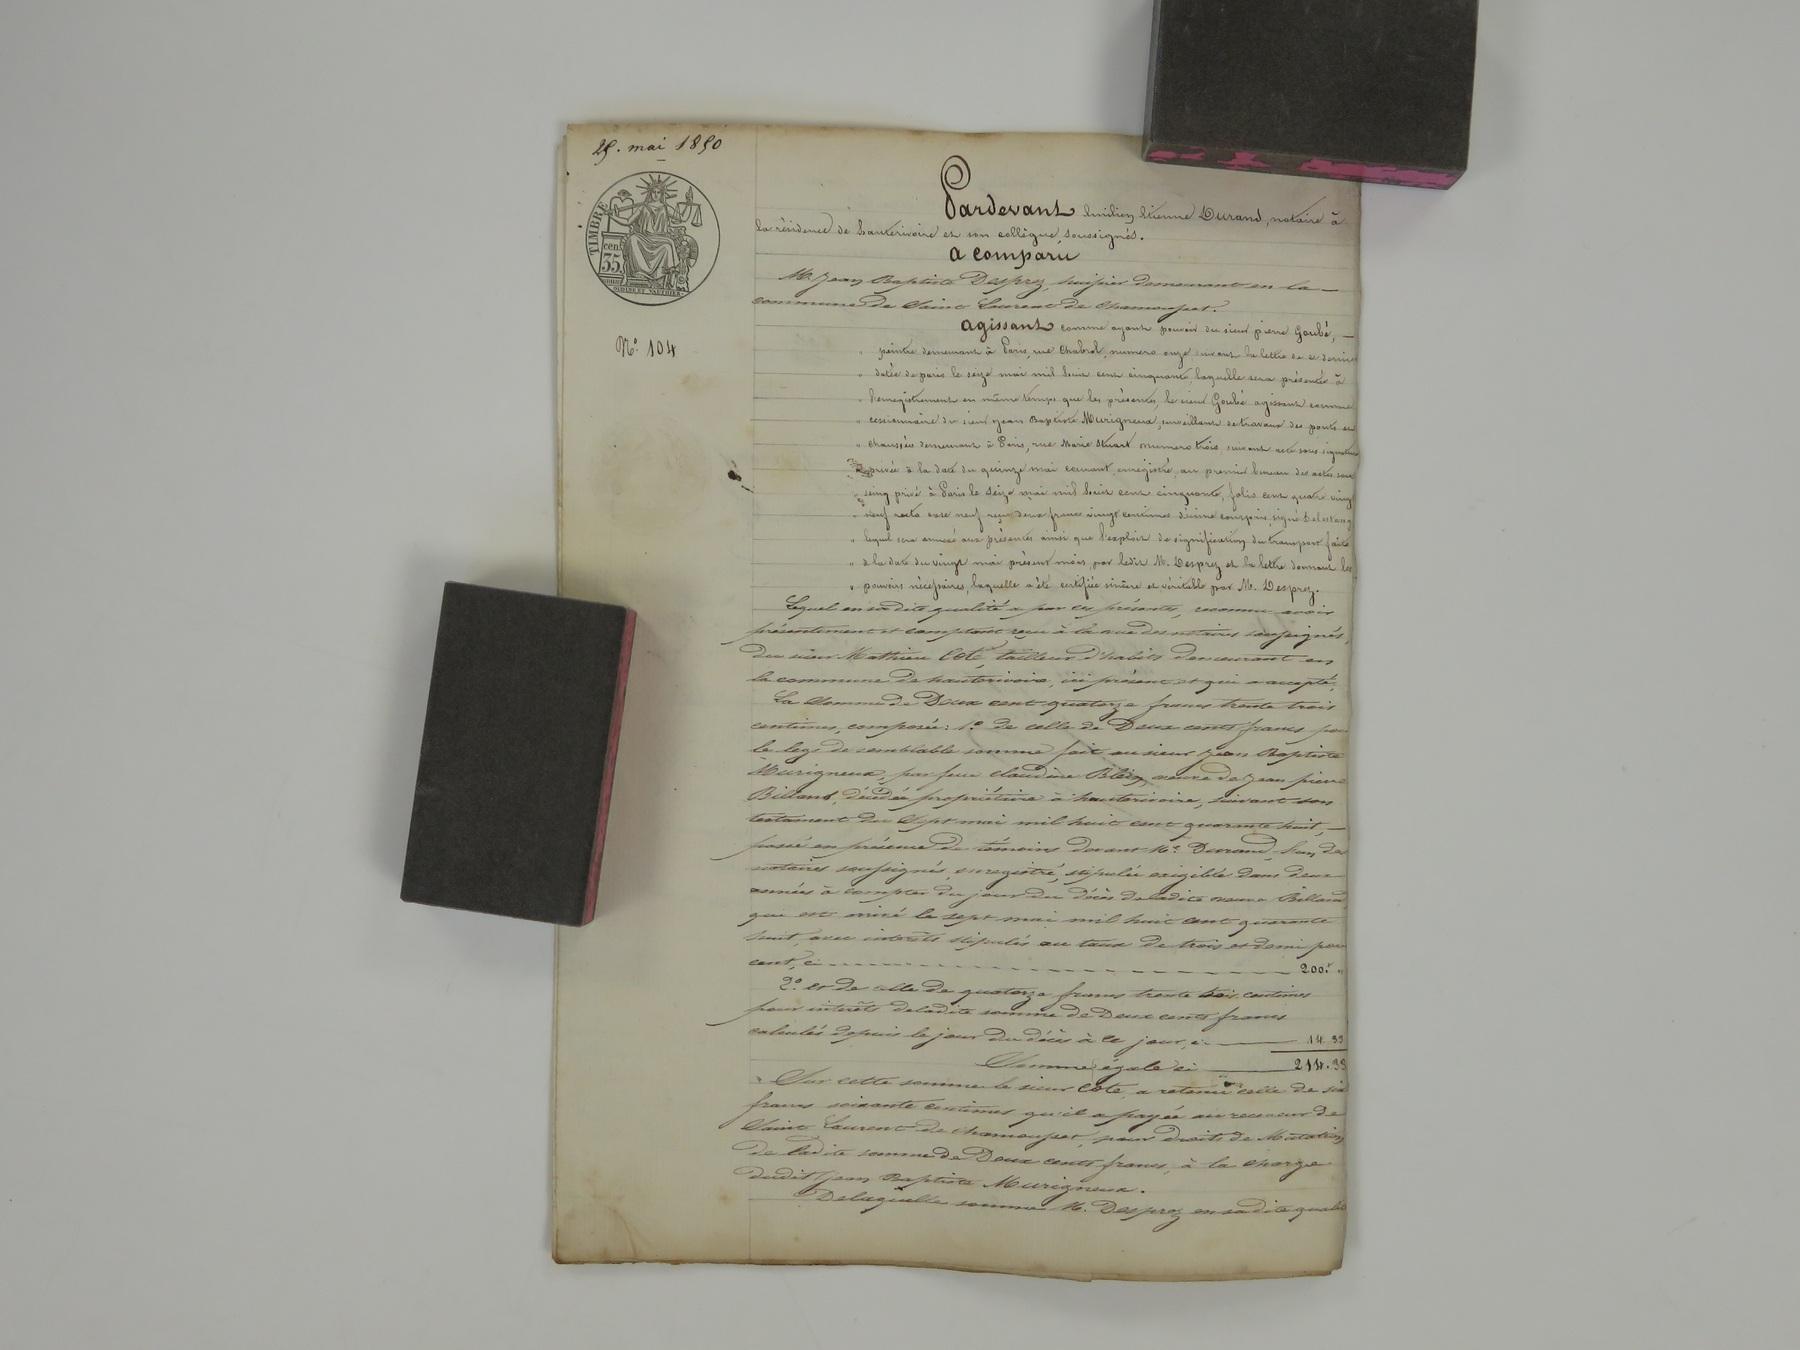 25. mai 1850
TIMBRE
cen
35
N.° 104
Pardevant Emilien Etienne Durand, notaire à
la résidence de hauterivoire et son collègue, soussignés.
a comparu
M. Jean Baptiste Desprez, huissier demeurant en la —
commune de Saint Laurent de Chamousset.
agissant comme ayant pouvoir du sieur pierre Goubé, —
" peintre demeurant à Paris, rue Chabrol, numero onze suivant la lettre de ce dernier
" datée de paris le seize mai mil huit cent cinquante, laquelle sera présentée à
" l'enregistrement en même temps que les présentes, le sieur Goubé agissant comme
" cessionnaire du sieur Jean Baptiste Murigneux, surveillant de travaux des ponts et
" chaussées demeurant à Paris, rue Marie Stuart numero trois, suivant acte sous signature
" privée à la date du quinze mai courant, enregistré au premier bureau des actes sous
" seing privé à Paris le seize mai mil huit cent cinquante, folio cent quatre vingt
" neuf recto case neuf reçu deux francs vingt centimes dixième compris, signé Delestang
" lequel sera annexé aux présentes ainsi que l'exploit de signification du transport faite
" à la date du vingt mai présent mois, par ledit M. Desprez et la lettre donnant les
" pouvoirs nécessaires, laquelle a été certifiée sincère et véritable par M. Desprez.
Lequel en sadite qualité a par ces présentes, reconnu avoir
présentement et comptant reçu à la vue des notaires soussignés,
du sieur Mathieu Coté, tailleur d'habits demeurant en
la commune de hauterivoire, ici présent et qui a accepté,
La Somme de Deux cent quatorze francs trente trois
centimes, composée: 1.° de celle de Deux cents francs pour
le legs de semblable somme fait au sieur Jean Baptiste
Murigneux, par feue Claudine Blein, veuve de Jean pierre
Billand, décédée propriétaire à hauterivoire, suivant son
testament du Sept mai mil huit cent quarante huit, —
passé en présence de témoins devant M.e Durand, l'un des
notaires soussignés, enregistré, stipulée exigible dans deux
années à compter du jour du décès de ladite veuve Billand,
qui est arrivé le sept mai mil huit cent quarante
huit, avec intérêts stipulés au taux de trois et demi pour
cent, ci - - - - - - - - 200.f "
2.° et de celle de quatorze francs trente trois centimes
pour intérêts de ladite somme de Deux cents francs
calculés depuis le jour du décès à ce jour, ci — 14.33
Somme égale ci — 214.33
Sur cette somme le sieur Coté, a retenu celle de six
francs soixante centimes qu'il a payée au receveur de
Saint Laurent de Chamousset, pour droits de Mutation
de ladite somme de Deux cents francs, à la charge
dudit Jean Baptiste Murigneux.
De laquelle somme M. Desprez en sadite qualité